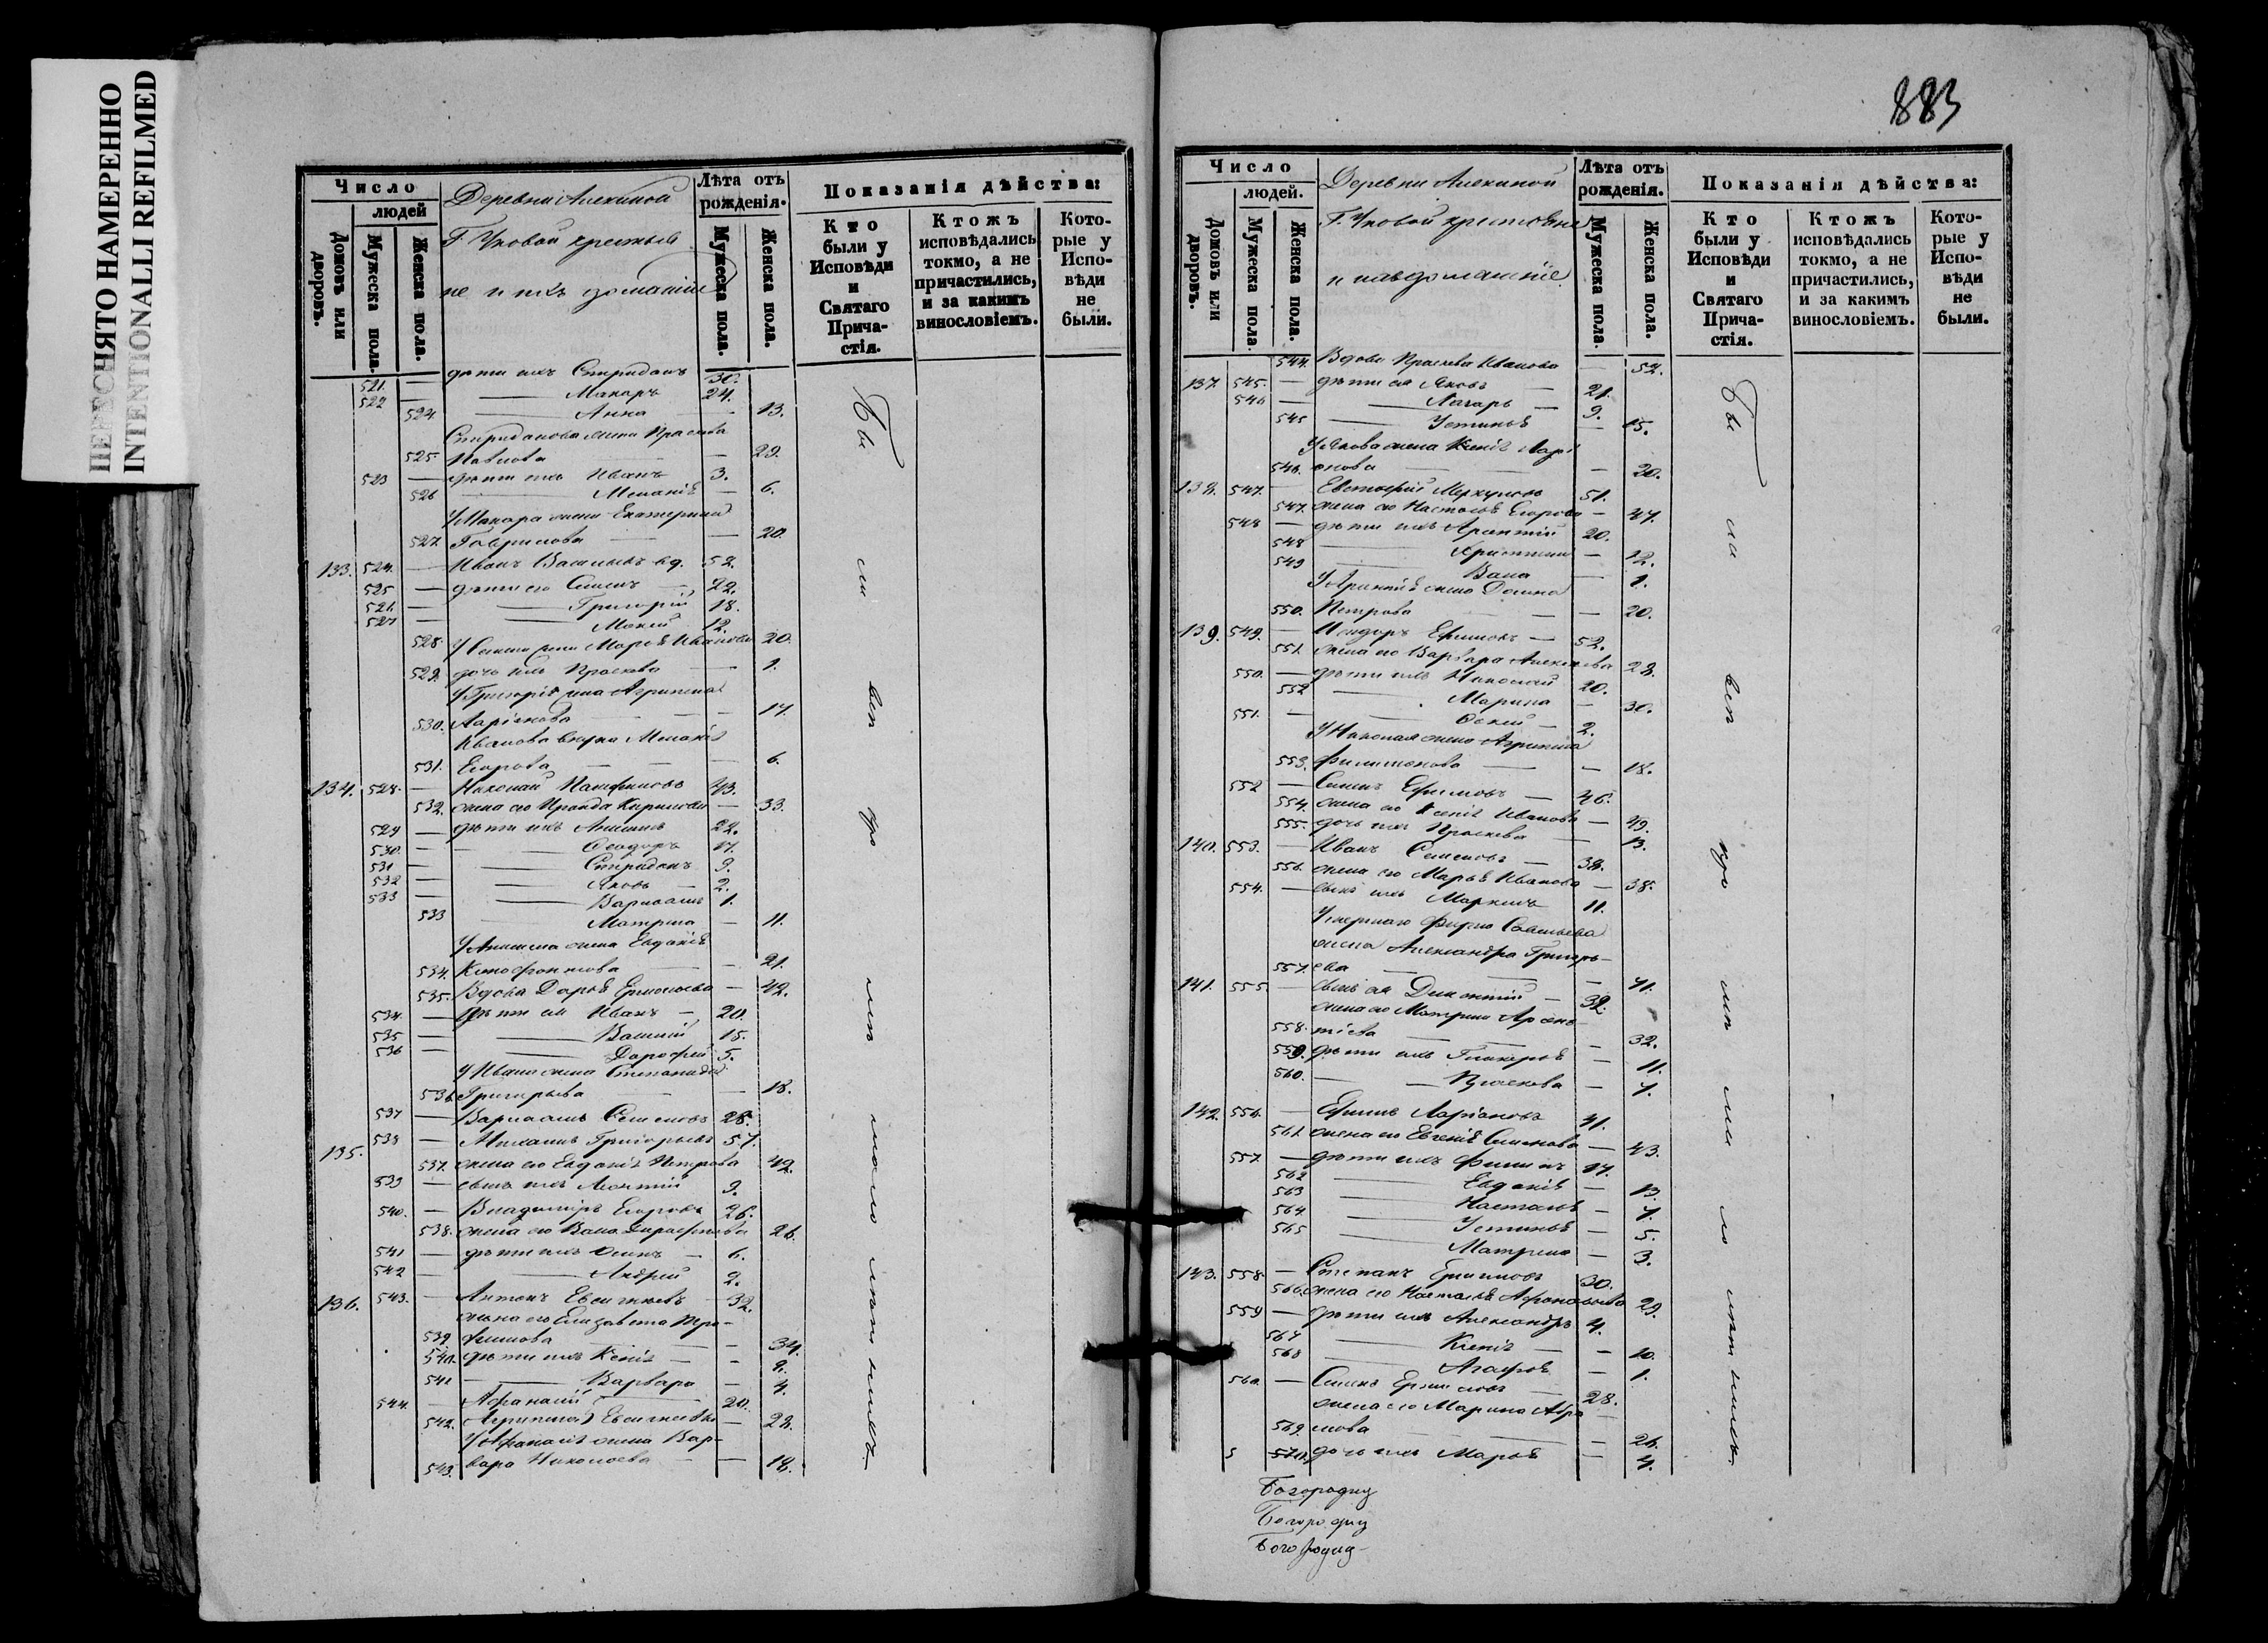 ПЕРЕСНЯТО НАМЕРЕННО
INTENTIONALLI REFILMED
Число
людей
Домовъ или дворовъ.
Мужеска пола.
Женска пола.
Деревни Алекиной
Г. Уковой крестьяне
не и ихъ домашніе
Лѣта отъ рожденія.
Мужеска пола.
Женска пола.
Показанія дѣйства:
Кто были у Исповѣди и Святаго Причастія.
Ктожъ исповѣдались токмо, а не причастились, и за какимъ винословіемъ.
Которые у Исповѣди не были.
521. — дѣти ихъ Спиридонъ 30.
522 — Макаръ 24.
524 — Анна — 13.
Спиридонова жена Праскева
525. Павлова — 29.
523 — дѣти ихъ Иванъ 3.
526 — Меланія — 6.
У Макара жена Екатерина
527. Гаврилова — 20.
133. 524. — Иванъ Васильевъ вд. 52.
525 — дѣти его Семенъ 22.
521. — Григорій 18.
527 — Мокей 12.
528. У Семена жена Марѳа Иванова 20.
529. дочь ихъ Праскева — 1.
У Григорія жена Агрипена
530. Ларіонова — 17.
Иванова внука Меланія
531. Егорова — 6.
134. 528. — Николай Панфиловъ 43.
532. жена его Ираида Кирилова — 33.
529 — дѣти ихъ Анисимъ 22.
530. — Ѳеодоръ 17.
531 — Спиридонъ 9.
532 — Яковъ — 2.
533 — Варлаамъ 1.
533 Матрена — 11.
У Анисима жена Евдокія
534. Ксенофонтова — 21.
535. Вдова Дарья Ермолаева — 42.
534. — дѣти ея Иванъ — 20.
535 — Василій 15.
536 — Дорофей 5.
У Ивана жена Степанида
536. Григорьева — 18.
537 — Варлаамъ Семеновъ 28.
135. 538 — Михаилъ Григорьевъ 57.
537. жена его Евдокія Петрова 42.
539 — сынъ ихъ Леонтій 9.
540. — Владимиръ Егоровъ 26.
538. жена его Васса Дорофеева 26.
541 — дѣти ихъ Осипъ — 6.
542 — Андрей 2.
136. 543. — Антонъ Евсигнеевъ — 32.
жена его Елизавета Тро-
539. фимова — 34.
540. дѣти ихъ Ксенія — 9.
541 — Варвара — 4.
544. — Афанасій — 20.
542. Агрипена Евсигнеевы — 22.
У Афанасія жена Вар-
543. вара Николаева — 18.
Бы
ли
вси
883
Число
людей.
Домовъ или дворовъ.
Мужеска пола
Женска пола.
Деревни Алекиной
Г. Уковой крестьяне
и ихъ домашніе
Лѣта отъ рожденія.
Мужеска пола.
Женска пола.
Показанія дѣйства:
Кто были у Исповѣди и Святаго Причастія.
Ктожъ исповѣдались токмо, а не причастились, и за какимъ винословіемъ.
Которые у Исповѣди не были.
544. Вдова Праскева Иванова — 52.
137. 545. — дѣти ея Яковъ — 21.
546 — Лазарь — 9.
545 — Устинья — 15.
У Якова жена Ксенія Лари
546. онова — 20.
138. 547. — Евстафій Меркуловъ 51.
547. жена его Настасья Егорова — 47.
548 — дѣти ихъ Арсентій 20.
548 — Христина — 12.
549 — Васса — 1.
У Арсентія жена Домна
550. Петрова — 20.
139. 549. — Исидоръ Ефимовъ — 52.
551. жена его Варвара Алексеева 28.
550. — дѣти ихъ Николай 20.
552 — Марина — 30.
551. — 2.
У Николая жена Агрипена
553. Филимонова — 18.
552 — Семенъ Ефимовъ — 46.
554. жена его Ксенія Иванова — 49.
555. дочь ихъ Праскева — 13.
140. 553. — Иванъ Семеновъ — 38.
556. жена его Марья Иванова — 38.
554. — сынъ ихъ Маркелъ 11.
У мершаго Фирса Савельева
жена Александра Григорь-
557. ева — 71.
141. 555. — сынъ ея Дементій — 32.
жена его Матрена Арсен-
558. тіева — 32.
559. дѣти ихъ Гликерія — 11.
560. — Праскева — 7.
142. 556. — Ефимъ Ларіоновъ 41.
561. жена его Евгенія Семенова — 43.
557. — дѣти ихъ Филипъ 17.
562 — Евдокія — 13.
563 — Настасья — 7.
564 — Устинья — 5.
565 — Матрена — 3.
143. 558. — Степанъ Ермиловъ 30.
566. жена его Настасья Афонасьева 29.
559 — дѣти ихъ Александръ 4.
567 — Ксенія — 10.
568 — Агафья — 1.
560. — Семенъ Ермиловъ — 28.
жена его Марина Абра
569. мова — 26.
5 570. дочь ихъ Марѳа — 4.
Бы
ли
вси
Богородиц
Богородиц
Богородиц